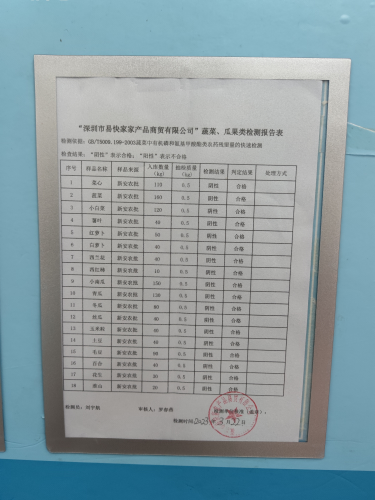 “深圳市易快家家产品商贸有限公司”蔬菜、瓜果类检测报告表
检测依据：GB/T5009.199-2003蔬菜中有机磷和氨基甲酸酯类农药残留量的快速检测
检查结果：“阴性”表示合格；“阳性”表示不合格
序号 样品名称 样品来源 入库数量(kg) 抽检质量(kg) 检测结果 判定结果 处理方式
1 菜心 新安农批 110 0.5 阴性 合格
2 菠菜 新安农批 100 0.5 阴性 合格
3 小白菜 新安农批 120 0.5 阴性 合格
4 新安农批 40 0.5 阴性 合格
5 红萝卜 新安农批 50 0.5 阴性 合格
6 白萝卜 新安农批 40 0.5 阴性 合格
7 西兰花 新安农批 40 0.5 阴性 合格
8 新安农批 10 0.5 阴性 合格
9 小南瓜 新安农批 150 0.5 阴性 合格
10 青瓜 新安农批 130 0.5 阴性 合格
11 冬瓜 新安农批 80 0.5 阴性 合格
12 丝瓜 新安农批 40 0.5 阴性 合格
13 玉米粒 新安农批 0.5 阴性 合格
14 土豆 新安农批 40 0.5 阴性 合格
15 毛豆 新安农批 0.5 阴性 合格
16 百合 新安农批 40 0.5 阴性 合格
17 花生 新安农批 20 0.5 阴性 合格
18 淮山 新安农批 20 0.5 阴性 合格
检测员： 审核人：
检测时间：2023年 月22日